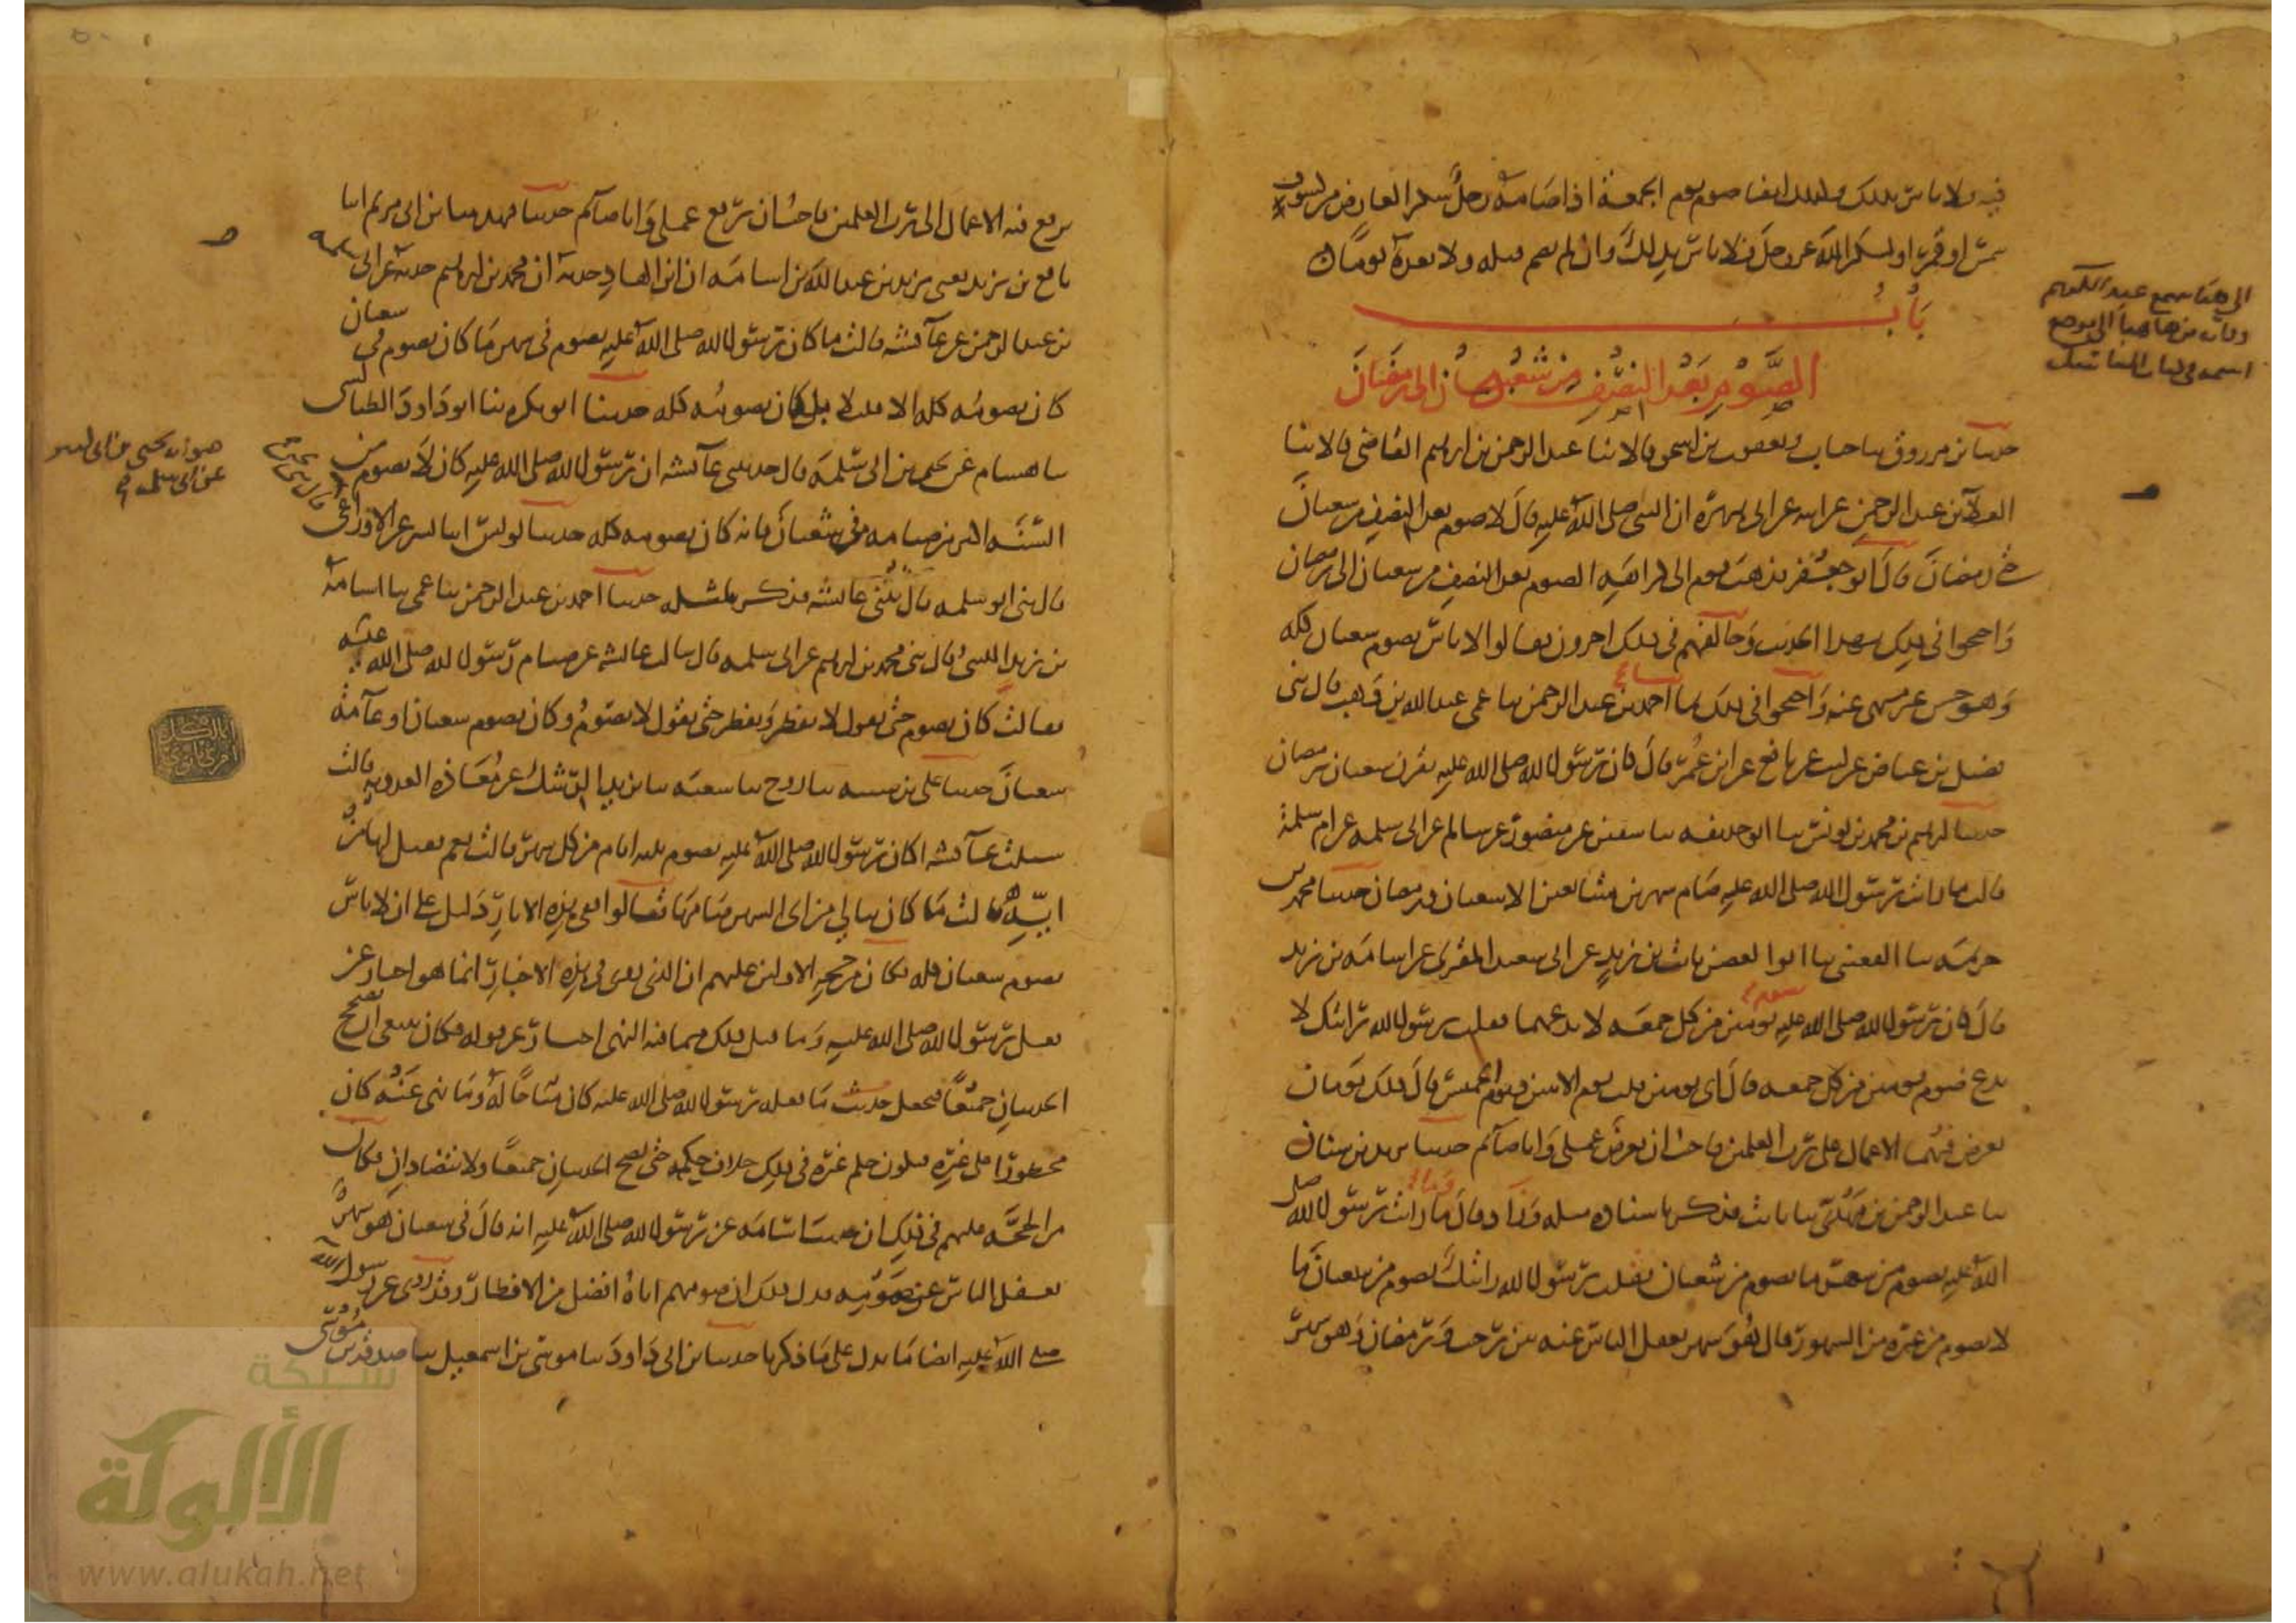 فيه ولا باس بذلك وكذلك ايضا صوم يوم الجمعة اذا صامه رجل شكر العارض من كسوف
شمس او قمر او لشكر الله عز وجل فلا باس بذلك وان لم يصم قبله ولا بعده يوما
باب
الصوم بعد النصف من شعبان الى رمضان
حدثنا ابن مرزوق ثنا حبان ويعقوب بن اسحق قالا ثنا عبد الرحمن بن ابرهيم القاضي قالا ثنا
العلاء بن عبد الرحمن عن ابيه عن ابي هريرة ان النبي صلى الله عليه قال لا صوم بعد النصف من شعبان
حتى رمضان قال ابو جعفر فذهب قوم الى كراهة الصوم بعد النصف من شعبان الى رمضان
واحتجوا في ذلك بهذا الحديث وخالفهم في ذلك اخرون فقالوا لا باس بصوم شعبان كله
وهو حسن غير منهي عنه واحتجوا في ذلك بما احمد بن عبد الرحمن ثنا عمي عبد الله بن وهب قال ثني
فضيل بن عياض عن ليث عن نافع عن ابن عمر قال كان رسول الله صلى الله عليه يقرن شعبان برمضان
حدثنا ابرهيم بن محمد بن يونس ثنا ابو حذيفه ثنا سفين عن منصور عن سالم عن ابي سلمه عن ام سلمة
قالت ما رايت رسول الله صلى الله عليه صام شهرين متتابعين الا شعبان ورمضان حدثنا محمد بن
خزيمه ثنا القعنبي ثنا ابو الغصن ثابت بن عن ابي سعيد المقبري عن اسامه بن زيد
قال كان رسول الله صلى الله عليه يصوم يومين من كل جمعه لا يدعهما فقلت يرسول الله رايتك لا
تدع صوم يومين من كل جمعه قال اي يومين قلت يوم الاثنين ويوم الخميس قال ذلك يومان
تعرض فيهما الاعمال على رب العلمين فاحب ان يعرض عملي وانا صائم حدثنا يزيد بن سنان
ثنا عبد الرحمن بن مهدي ثنا ثابت فذكر باسناده مثله وزاد وقال ما رايت رسول الله صلى
الله عليه يصوم من شهر ما يصوم من شعبان فقلت يرسول الله رايتك تصوم من شعبان ما
لا تصوم من غيره من الشهور قال هو شهر يغفل الناس عنه بين رجب ورمضان وهو شهر
الى هنا سمع عبد
يرفع فيه الاعمال الى رب العلمين فاحب ان يرفع عملي وانا صائم حدثنا فهد ثنا ابن ابي مريم انا
نافع بن يزيد يعني يزيد بن عبد الله بن اسامه ان ابن الهاد حدثه ان محمد بن ابرهيم حدثه عن ابي سلمه
بن عبد الرحمن عن عائشه قالت ما كان رسول الله صلى الله عليه يصوم في شهر ما كان يصوم في شعبان
كان يصومه كله الا قليلا بل كان يصومه كله حدثنا ابو بكره ثنا ابو داود الطيالسي
ثنا هشام عن يحيى بن ابي سلمه قال حدثتني عائشه ان رسول الله صلى الله عليه كان لا يصوم من
السنه اكثر من صيامه في شعبان فانه كان يصومه كله حدثنا يونس انا بشر عن الاوزاعي
قال ثني ابو سلمه قال ثتني عائشه فذكر مثله حدثنا احمد بن عبد الرحمن ثنا عمي ثنا اسامة
بن زيد الليثي قال ثني محمد بن ابرهيم عن ابي سلمه قال سالت عائشه عن صيام رسول الله صلى الله عليه
فقالت كان يصوم حتى نقول لا يفطر ويفطر حتى نقول لا يصوم وكان يصوم شعبان او عامة
شعبان حدثنا علي بن شيبه ثنا روح ثنا شعبه ثنا يزيد الرشك عن معاذه العدويه قالت
سئلت عائشه اكان رسول الله صلى الله عليه يصوم ثلثه ايام من كل شهر قالت نعم فقيل لها من
ايه قالت ما كان يبالي من اي الشهر صامها قالوا ففي هذه الاثار دليل على ان لا باس
بصوم شعبان كله فكان من حجة الاولين عليهم ان الذي روي في هذه الاخبار انما هو اخبار عن
فعل رسول الله صلى الله عليه وما قبل ذلك مما فيه النهي اخبار عن قوله فكان ينبغي ان يصحح
الحديثان جميعا فجعل حديث ما فعله رسول الله صلى الله عليه كان مباحا له وما نهى عنه كان
محظورا على غيره فيكون حكم غيره في ذلك خلاف حكمه حتى يصح الحديثان جميعا ولا يتضادان فكان
من الحجة عليهم في ذلك ان حديث اسامه عن رسول الله صلى الله عليه انه قال في شعبان هو شهر
يغفل الناس عن صومه فدل ذلك ان صومهم اياه افضل من الافطار وقد روي عن رسول الله
صلى الله عليه ايضا ما يدل على ما ذكرنا حدثنا ابن ابي داود ثنا موسى بن اسمعيل ثنا صدقه بن موسى
هو ابن يحيى عن ابي سلمه
شبكة
الألوكة
www.alukah.net